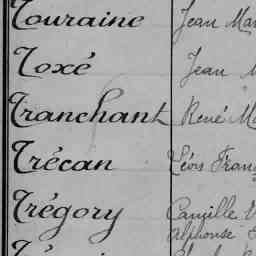 Touraine Jean Ma
Toxé Jean
Tranchant René M
Trécan Léon Fran
Trégory Camille
Alphonse